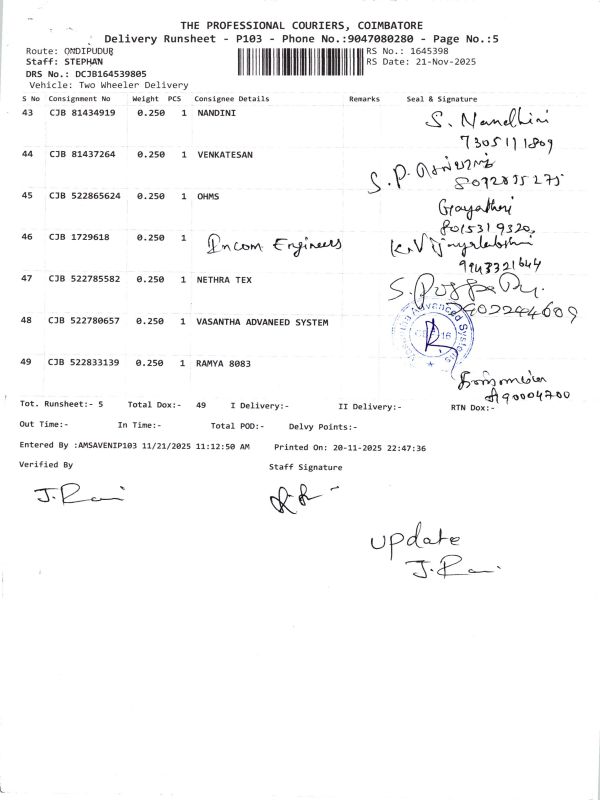 THE PROFESSIONAL COURIERS, COIMBATORE
Delivery Runsheet - P103 - Phone No.:9047080280 - Page No.:5
Route: ONDIPUDUR RS No.: 1645398
Staff: STEPHAN RS Date: 21-Nov-2025
DRS No.: DCJB164539805
Vehicle: Two Wheeler Delivery
S No Consignment No Weight PCS Consignee Details Remarks Seal & Signature
43 CJB 81434919 0.250 1 NANDINI S. Nandhini
7305111809
44 CJB 81437264 0.250 1 VENKATESAN S.P.
45 CJB 522865624 0.250 1 OHMS Gayathri
8015319320,
46 CJB 1729618 0.250 1 Incom Engineers K.Vijayalakshmi
9943321644
47 CJB 522785582 0.250 1 NETHRA TEX
48 CJB 522780657 0.250 1 VASANTHA ADVANEED SYSTEM
49 CJB 522833139 0.250 1 RAMYA 8083
Tot. Runsheet:- 5 Total Dox:- 49 I Delivery:- II Delivery:- RTN Dox:-
Out Time:- In Time:- Total POD:- Delvy Points:-
Entered By :AMSAVENIP103 11/21/2025 11:12:50 AM Printed On: 20-11-2025 22:47:36
Verified By Staff Signature
update